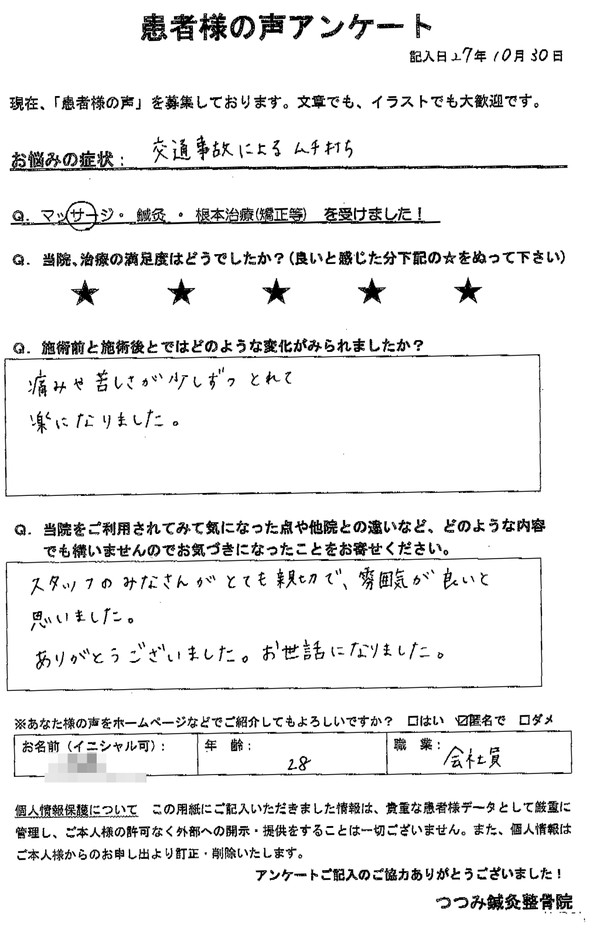 患者様の声アンケート
記入日 27年10月30日
現在、「患者様の声」を募集しております。文章でも、イラストでも大歓迎です。
お悩みの症状： 交通事故によるムチ打ち
Q. マッサージ・ 鍼灸 ・ 根本治療(矯正等) を受けました！
Q. 当院、治療の満足度はどうでしたか？（良いと感じた分下記の☆をぬって下さい）
★ ★ ★ ★ ★
Q. 施術前と施術後とではどのような変化がみられましたか？
痛みや苦しさが少しずつとれて
楽になりました。
Q. 当院をご利用されてみて気になった点や他院との違いなど、どのような内容
でも構いませんのでお気づきになったことをお寄せください。
スタッフのみなさんがとても親切で、雰囲気が良いと
思いました。
ありがとうございました。お世話になりました。
※あなた様の声をホームページなどでご紹介してもよろしいですか？ □はい ☑匿名で □ダメ
お名前（イニシャル可）： 年 齢： 28 職 業： 会社員
個人情報保護について この用紙にご記入いただきました情報は、貴重な患者様データとして厳重に
管理し、ご本人様の許可なく外部への開示・提供をすることは一切ございません。また、個人情報は
ご本人様からのお申し出より訂正・削除いたします。
アンケートご記入のご協力ありがとうございました！
つつみ鍼灸整骨院